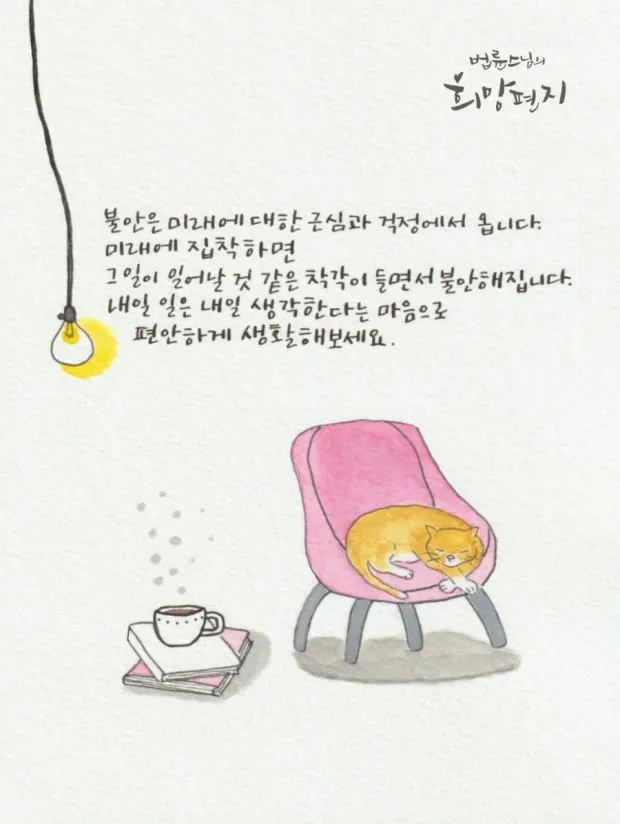 법륜스님의
희망편지
불안은 미래에 대한 근심과 걱정에서 옵니다.
미래에 집착하면
그 일이 일어날 것 같은 착각이 들면서 불안해집니다.
내일 일은 내일 생각한다는 마음으로
편안하게 생활해보세요.